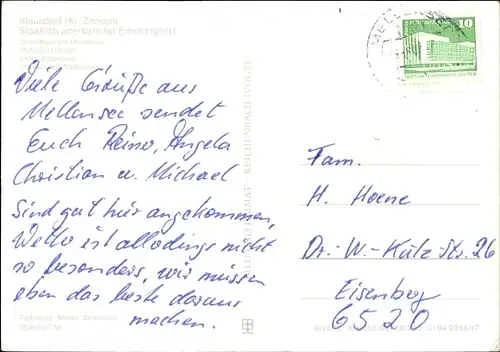 Klausdorf (Kr. Zossen)
Staatlich anerkannter Erholungsort
Viele Grüße aus
Mellensee sendet
Euch Reiner, Angela
Christian u. Michael
Sind gut hier angekommen,
Wetter ist allerdings nicht
so besonders, wir müssen
eben das beste daraus
machen.
BILD UND HEIMAT REICHENBACH (VOGTL)
10
Fam.
H. Hoene
Dr.-W.-Külz-Str. 26
Eisenberg
6520